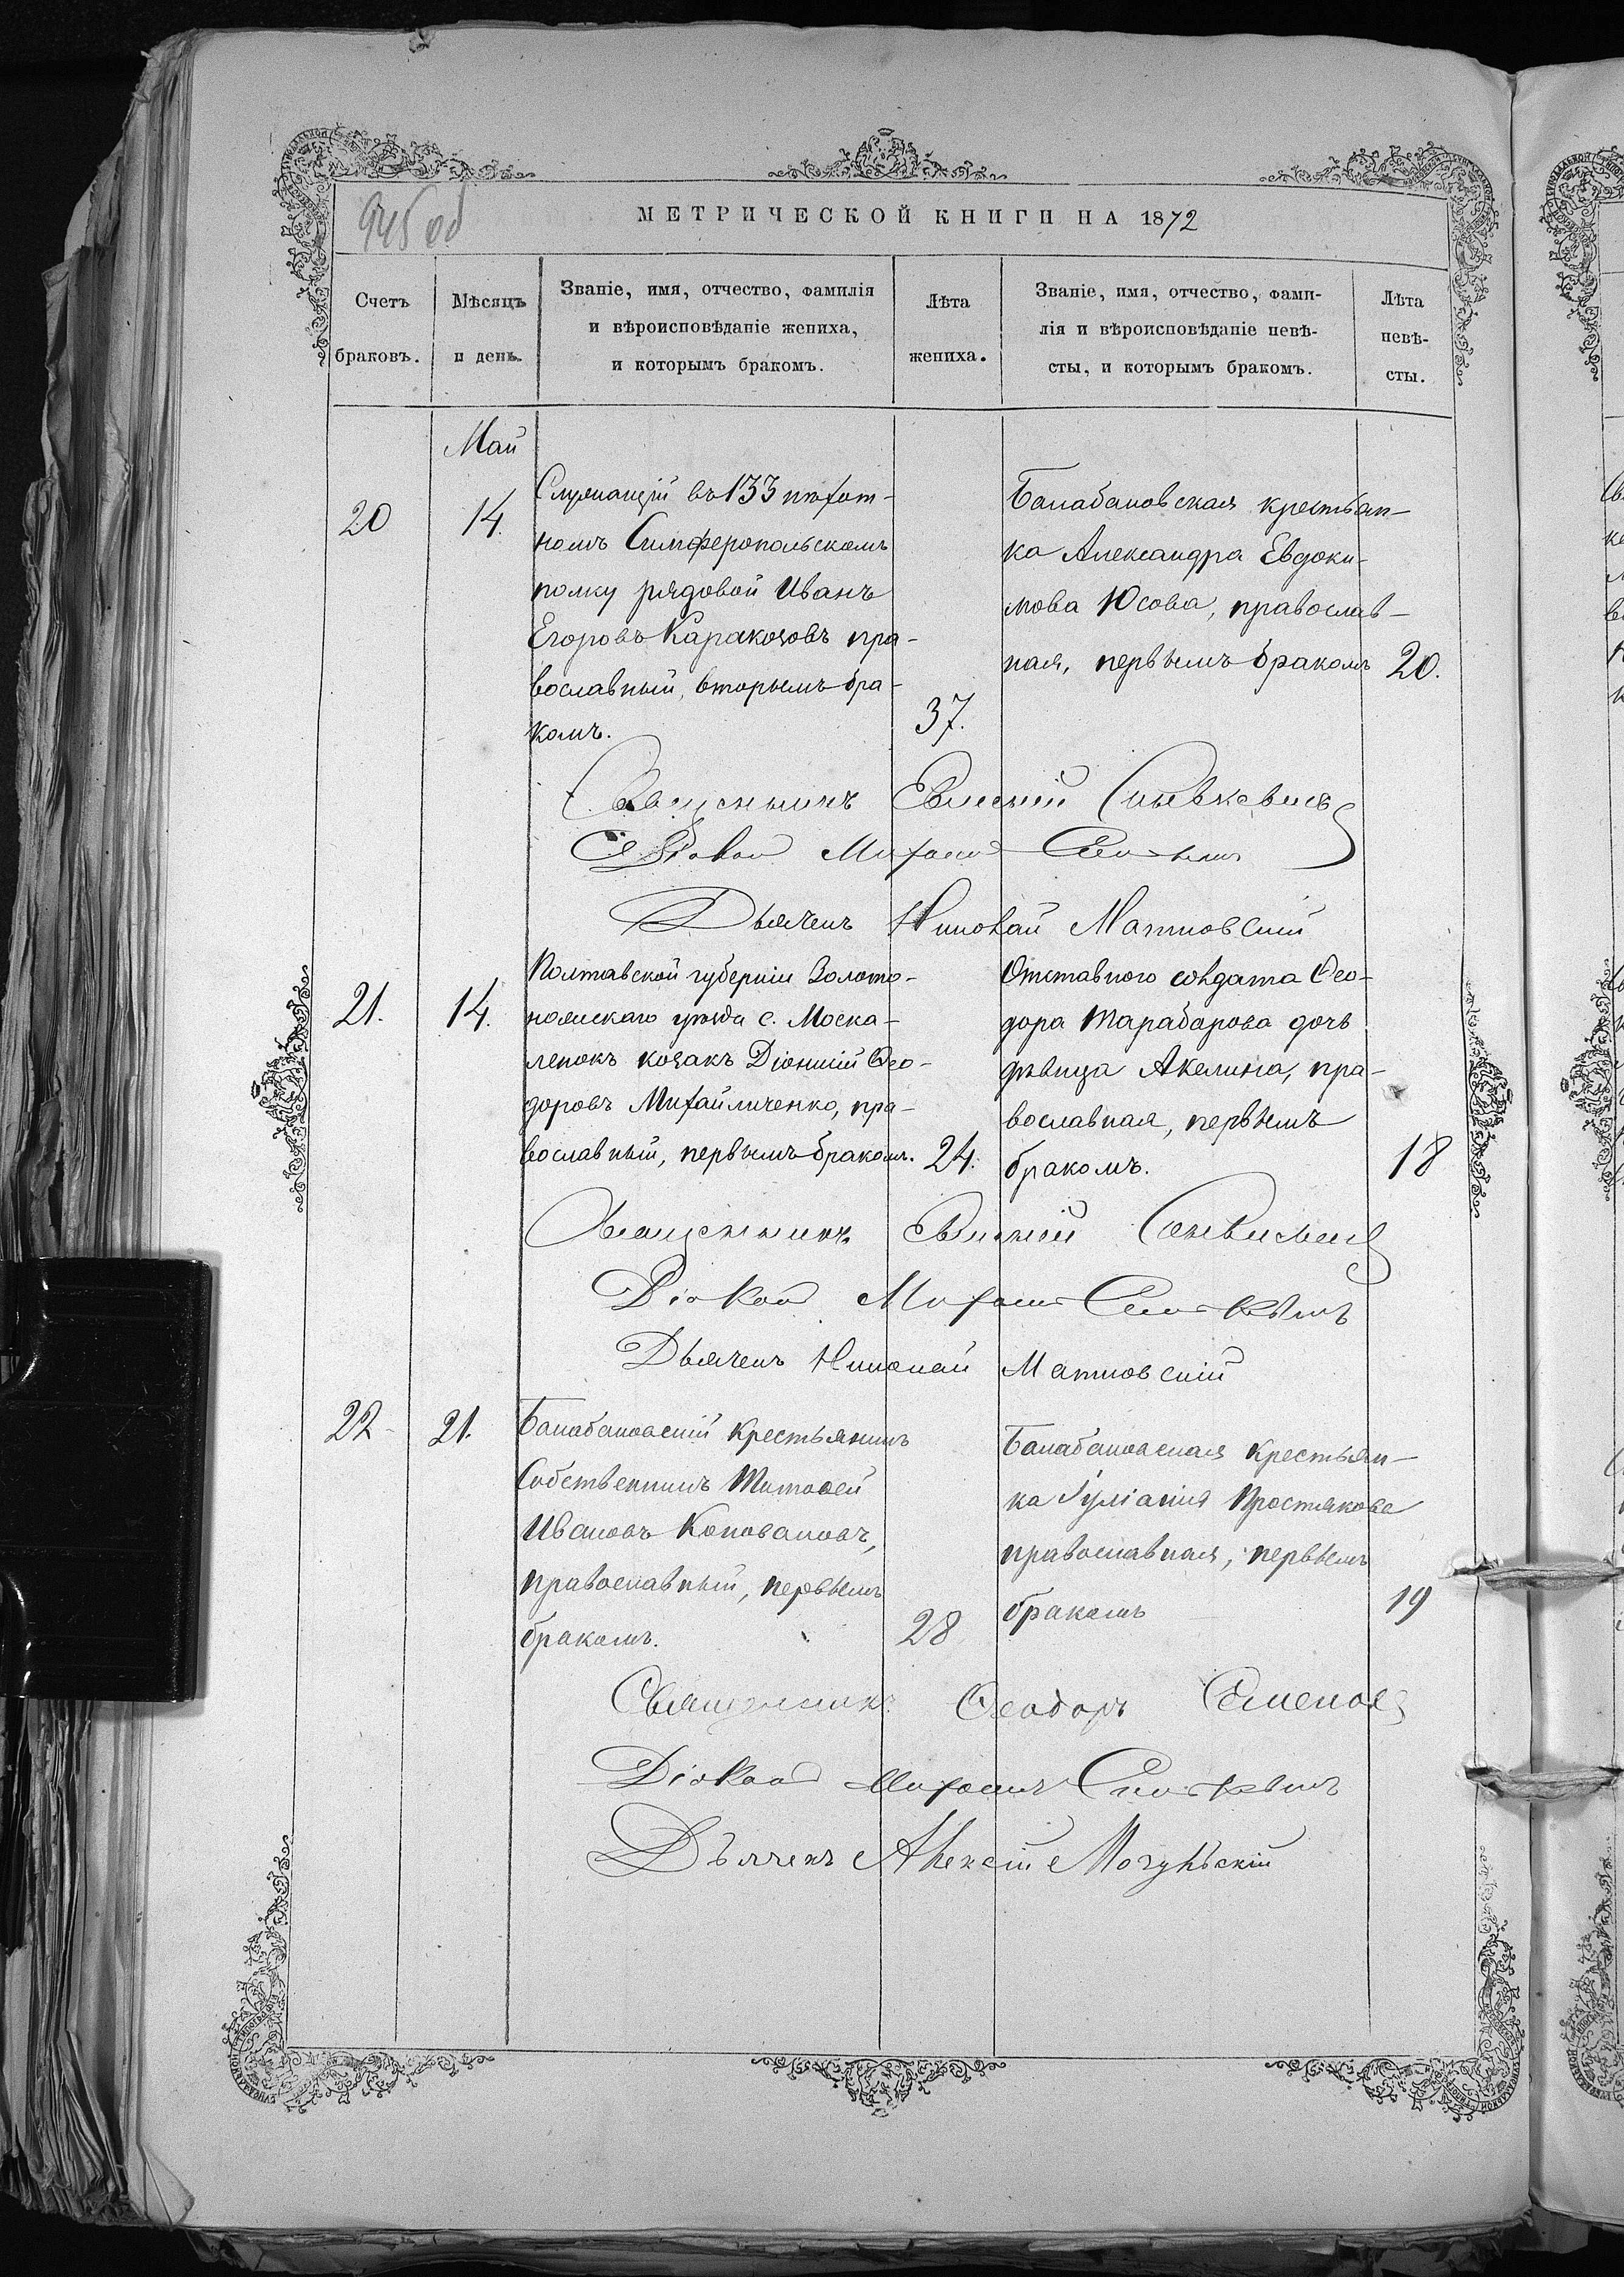 945 об
МЕТРИЧЕСКОЙ КНИГИ НА 1872
Счетъ браковъ.
Мѣсяцъ и день.
Званіе, имя, отчество, фамилія
и вѣроисповѣданіе жениха,
и которымъ бракомъ.
Лѣта жениха.
Званіе, имя, отчество, фами-
лія и вѣроисповѣданіе невѣ-
сты, и которымъ бракомъ.
Лѣта невѣ-
сты.
Май
20
14.
Служащій въ 133 пѣхот-
номъ Симферопольскомъ
полку рядовой Иванъ
Егоровъ Каракозовъ пра-
вославный, вторымъ бра-
комъ.
37.
Балабановская крестьян-
ка Александра Евдоки-
мова Юсова, православ-
ная, первымъ бракомъ
20.
Священникъ Евгений
Діакон Михаил
Дьячекъ Николай
21.
14.
Полтавской губерніи Золото-
ношскаго уѣзда с. Моска-
ленокъ козакъ Діонисій Ѳео-
доровъ Михайличенко, пра-
вославный, первымъ бракомъ.
24.
Отставного солдата Ѳео-
дора Тарабарова дочь
дѣвица Акелина, пра-
вославная, первымъ
бракомъ.
18
Священникъ
Діакон Михаил
Дьячекъ Николай
22
21.
Балабановскій крестьянинъ
Собственникъ Тимоѳей
Ивановъ Коновановъ,
православный, первымъ
бракомъ.
28
Балабановская крестьян-
ка Іуліанія Простякова
православная, первымъ
бракомъ
19
Священникъ Ѳеодоръ Семенов
Діакон Михаил
Дьячекъ Алексій Могульскій